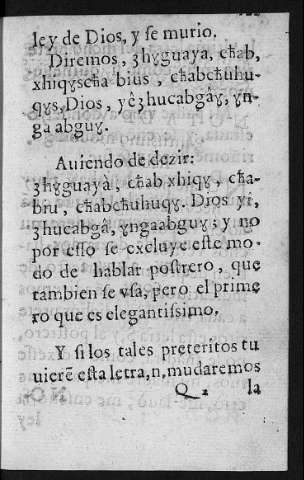 ley de Dios, y se murio.
Diremos, ȝhỿguaya, cħab,
xhiqỿscħa bius, cħabcħuhu-
qỿs, Dios, yȇȝhucabgâỿ, ỿn-
ga abguỿ.
Auiendo de dezir:
ȝhỿguayà, cħab xhiqỿ, cħa-
bru, cħabcħuhuqỿ. Dios yi,
ȝhucabgâ, ỿngaabguỿ; y no
por esso se excluye este mo-
do de hablar postrero, que
tambien se vsa, pero el prime
ro que es elegantissimo.
Y si los tales preteritos tu
uierẽ esta letra, n, mudaremos
Q 2 la